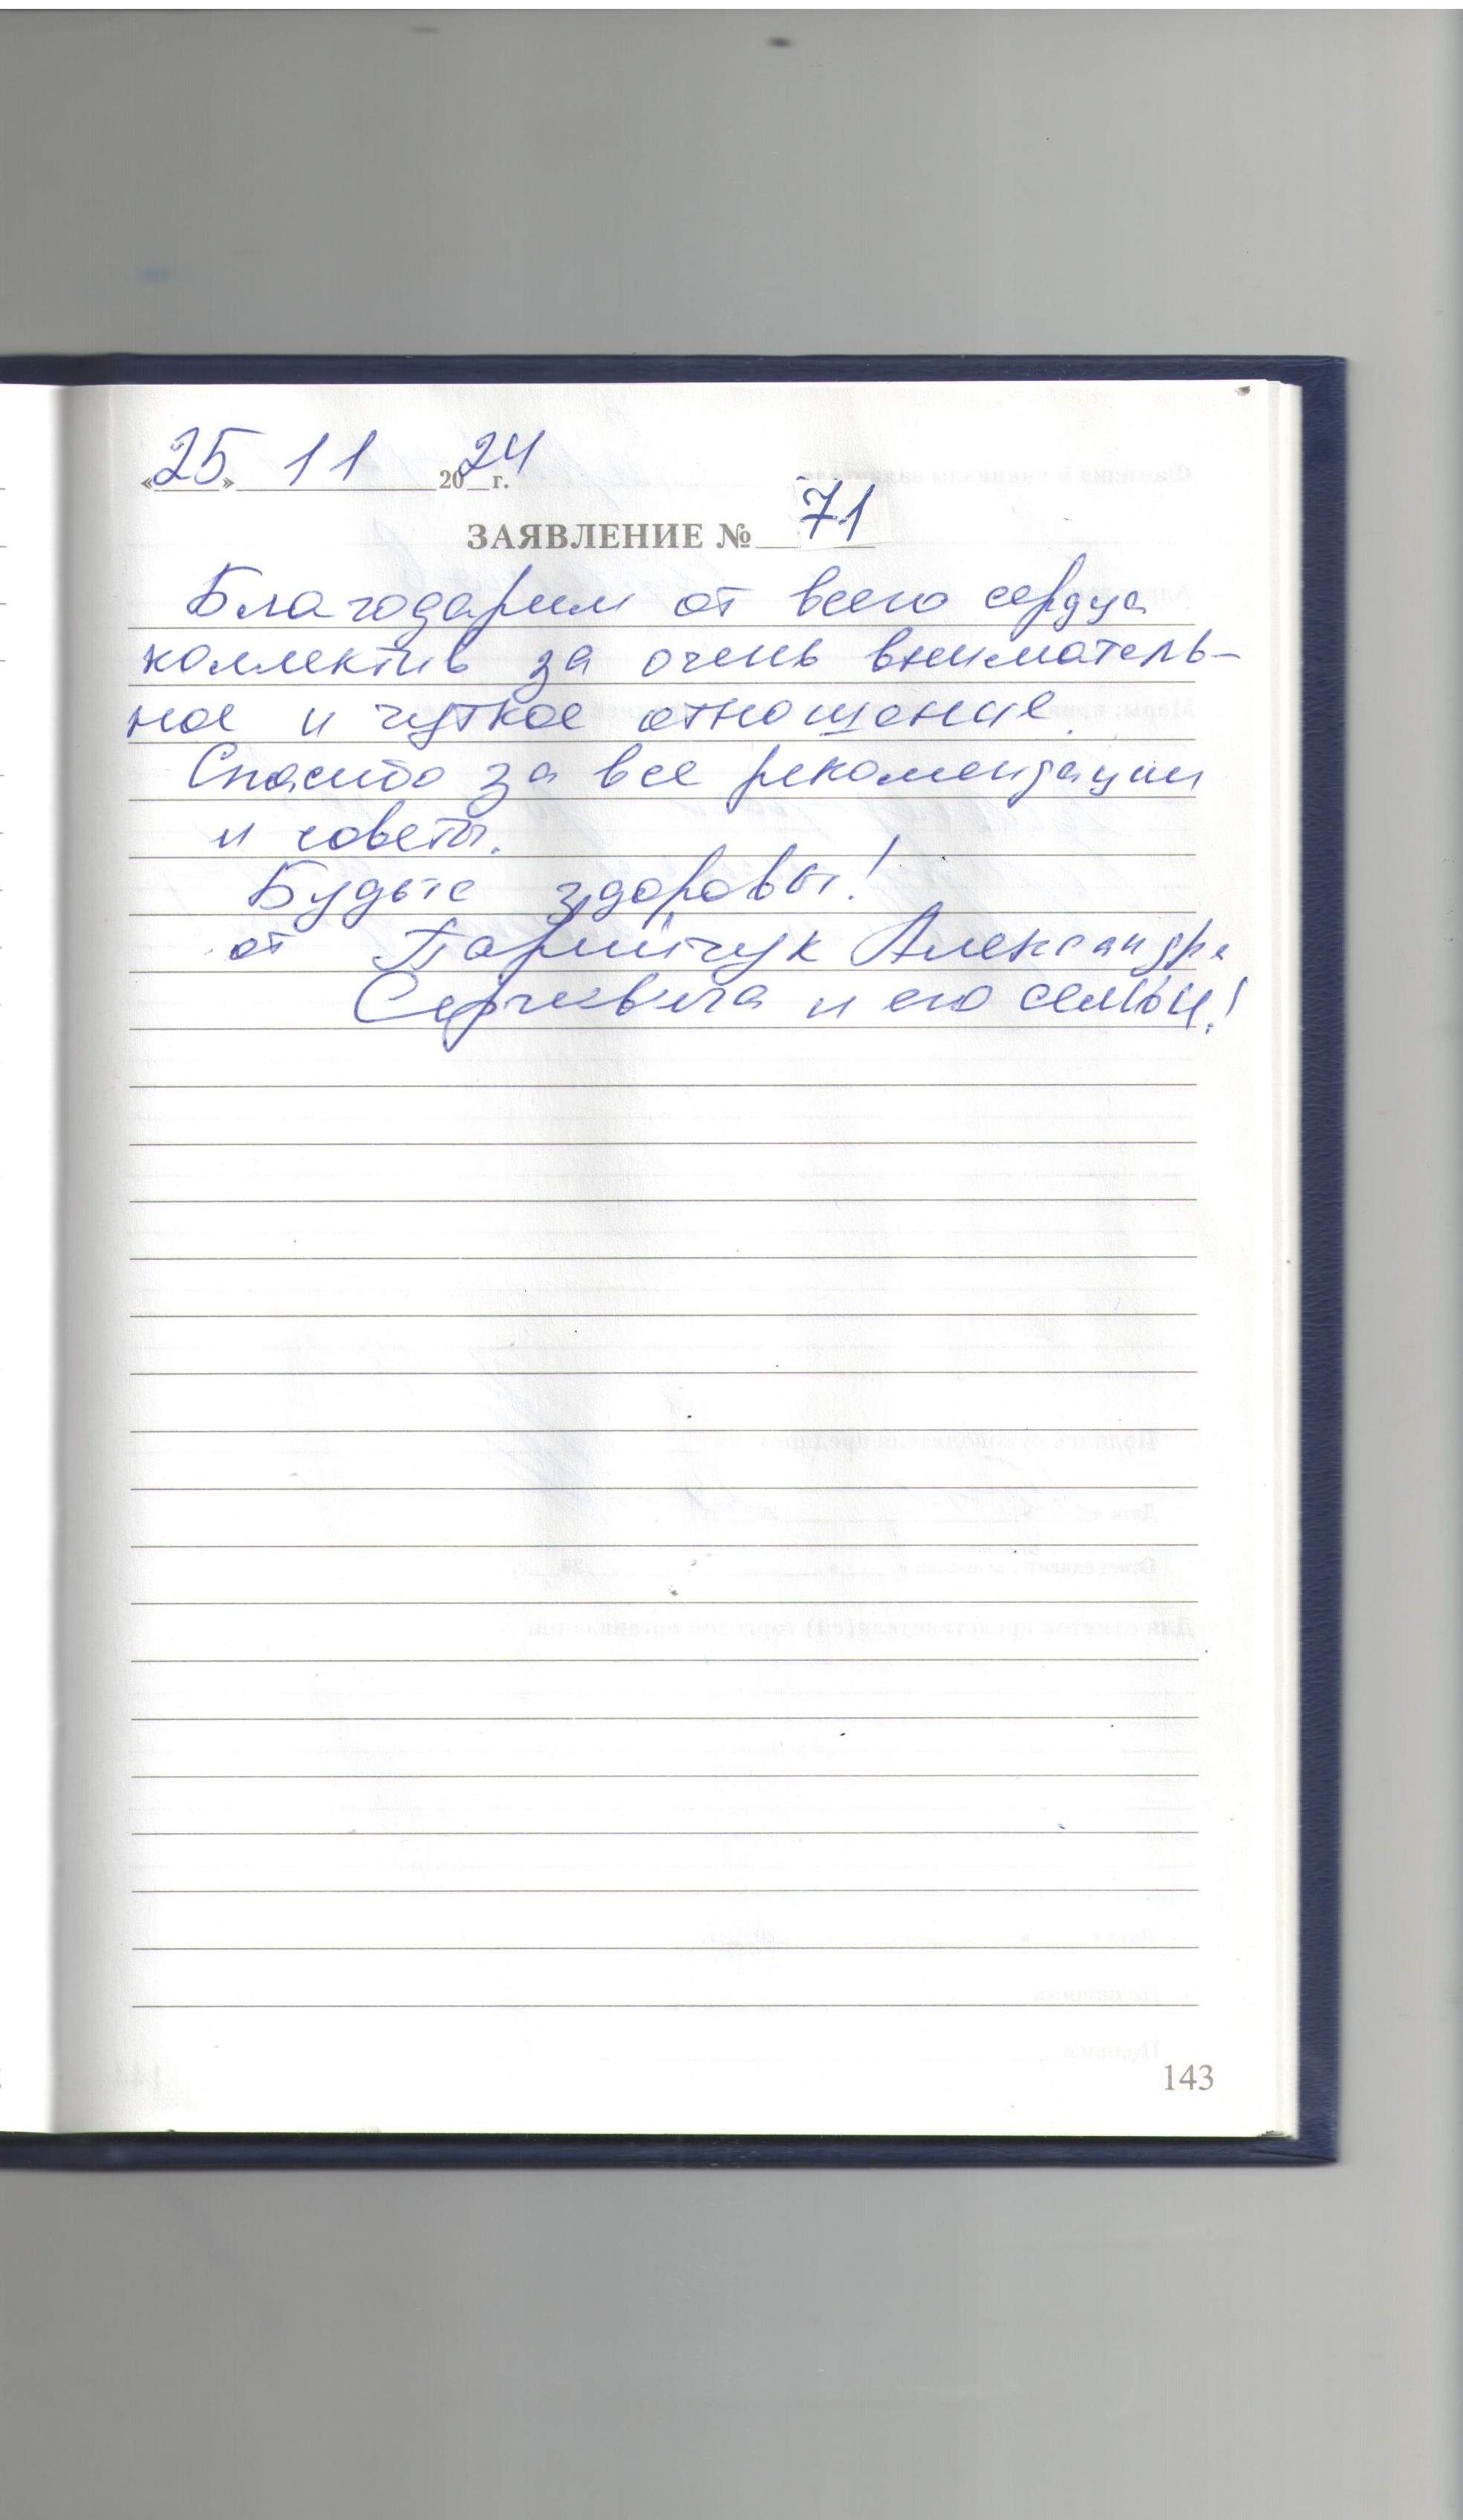 «25» 11 2024 г.
ЗАЯВЛЕНИЕ № 71
Благодарим от всего сердца
коллектив за очень вниматель-
ное и чуткое отношение.
Спасибо за все рекомендации
и советы.
Будьте здоровы!
от Александра
Сергеевича и его семьи!
143